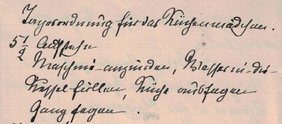 Tagesordnung für das Küchenmädchen.
5 1/2 Aufstehn
Maschine anzünden, Wasser in die
Kessel füllen, Küche ausfegen
Gang fegen.